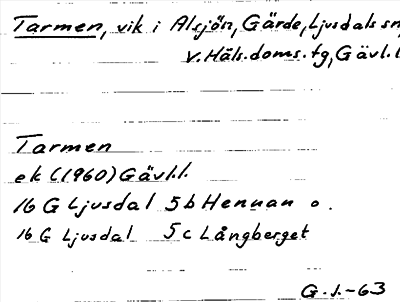 Tarmen, vik i Alsjön, Gärde, Ljusdals sn,
v. Häls. doms. tg, Gävl. l
Tarmen
ek (1960) Gävl.l.
16 G Ljusdal 5b Hennan o.
16 G Ljusdal 5c Långberget
G.J.-63